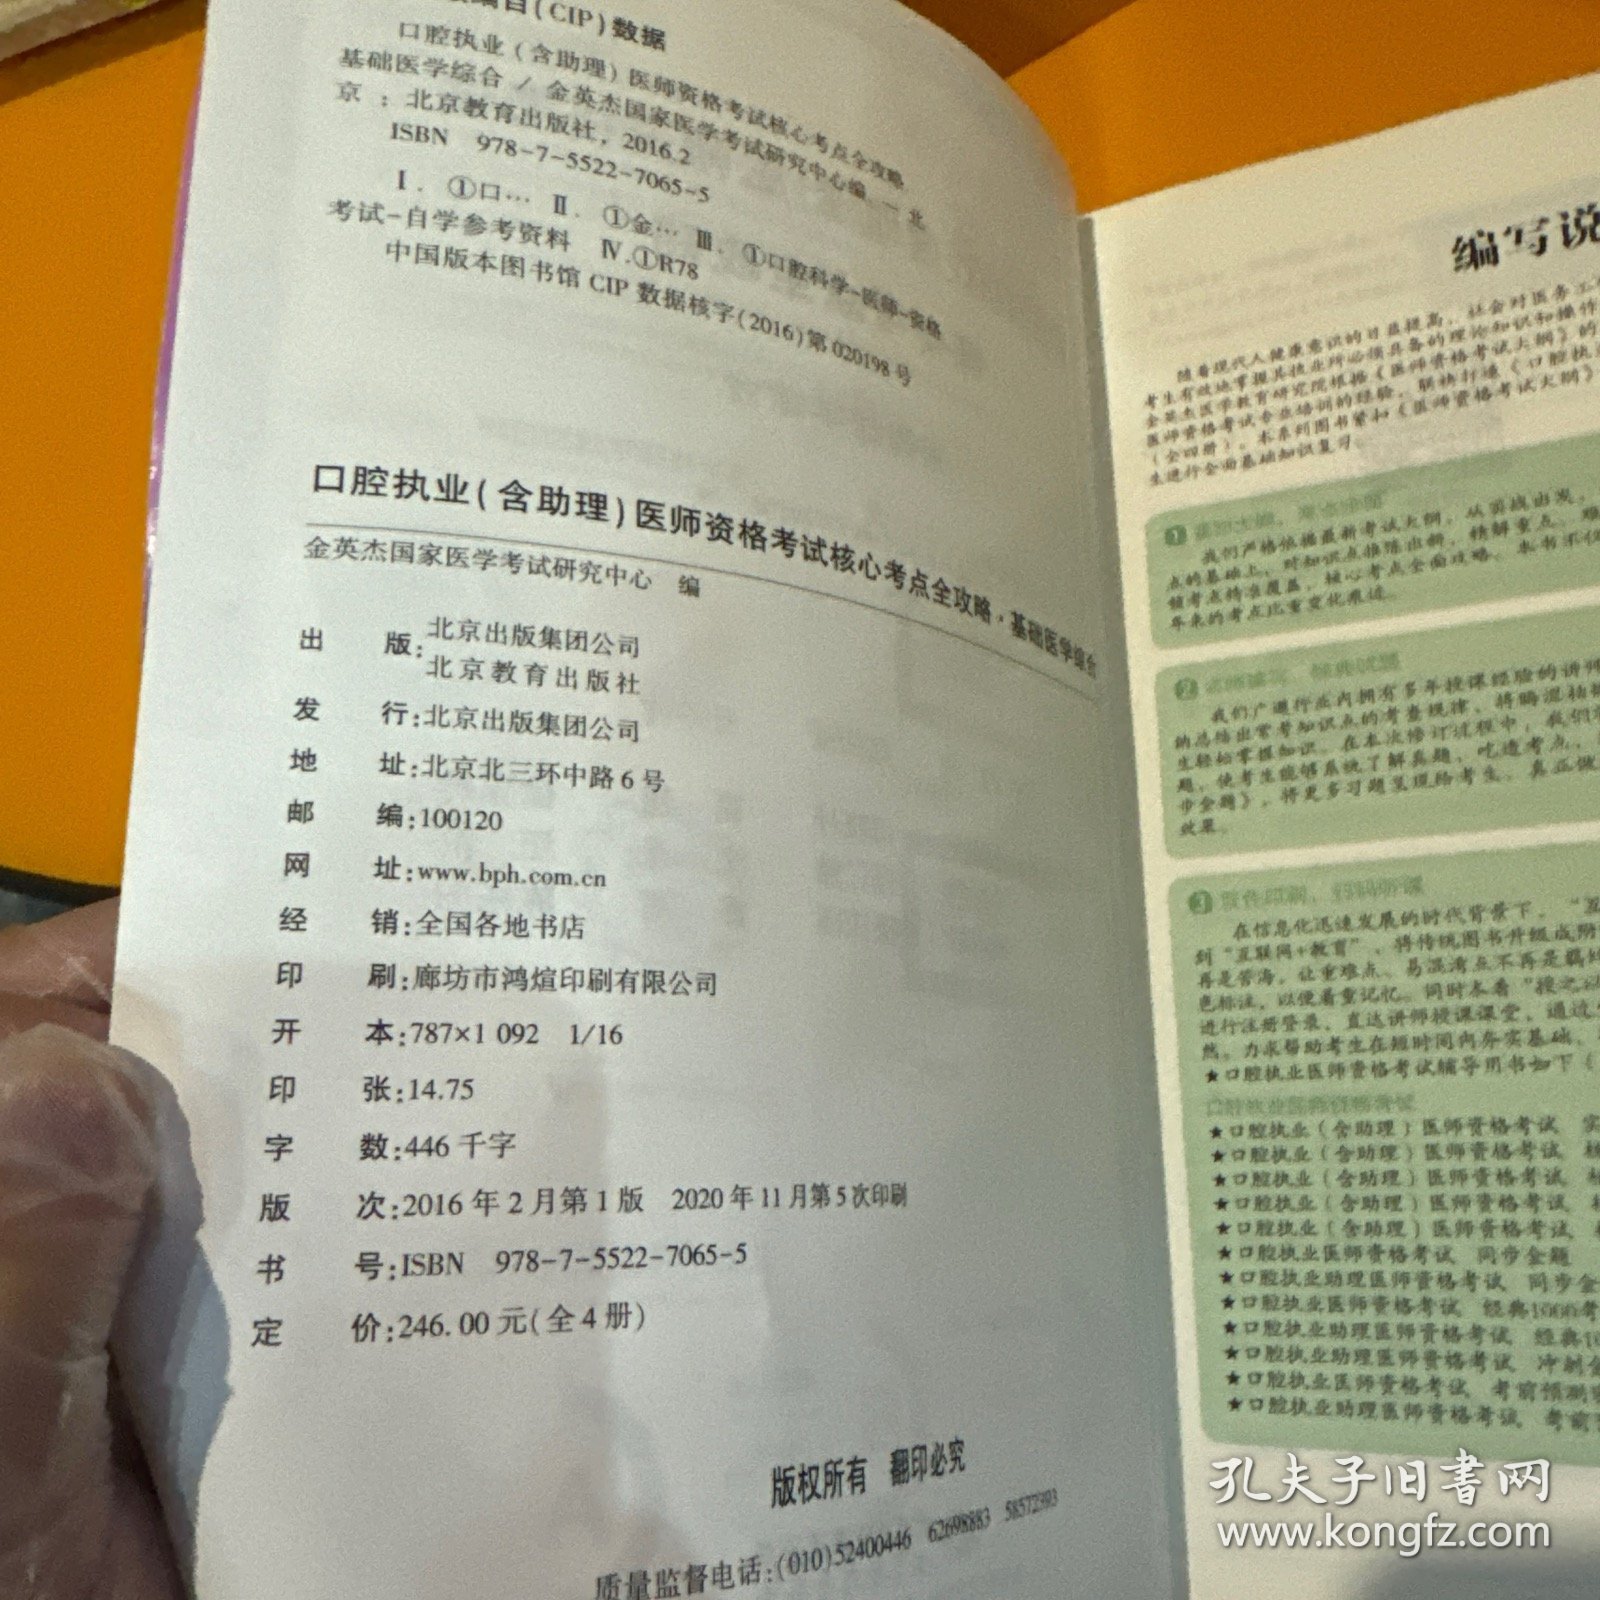 编目(CIP)数据
口腔执业(含助理)医师资格考试核心考点全攻略
基础医学综合/金英杰国家医学考试研究中心编.一北
京:北京教育出版社,2016.2
ISBN 978-7-5522-7065-5
Ⅰ.①口… Ⅱ.①金… Ⅲ.①口腔科学-医师-资格
考试-自学参考资料 Ⅳ.①R78
中国版本图书馆CIP数据核字(2016)第020198号
口腔执业(含助理)医师资格考试核心考点全攻略·基础医学综合
金英杰国家医学考试研究中心 编
出 版:北京出版集团公司
北京教育出版社
发 行:北京出版集团公司
地 址:北京北三环中路6号
邮 编:100120
网 址:www.bph.com.cn
经 销:全国各地书店
印 刷:廊坊市鸿煊印刷有限公司
开 本:787×1 092 1/16
印 张:14.75
字 数:446千字
版 次:2016年2月第1版 2020年11月第5次印刷
书 号:ISBN 978-7-5522-7065-5
定 价:246.00元(全4册)
版权所有 翻印必究
质量监督电话:(010)52400446 62698883 58572393
编写说
随着现代人健康意识的日益提高,社会对医务工
考生有效地掌握其执业所必须具备的理论知识和操作
金英杰医学教育研究院根据《医师资格考试大纲》的
医师资格考试专业培训的经验,联袂打造《口腔执业
(全四册)。本系列图书紧扣《医师资格考试大纲》
生进行全面基础知识复习。
我们严格依据最新考试大纲,从实战出发,
点的基础上,对知识点推陈出新,精解重点、难
频考点精准覆盖,核心考点全面攻略。本书不仅
年来的考点比重变化乘近。
我们广邀行业内拥有多年授课经验的讲师
纳总结出常考知识点的考查规律,将晦涩枯燥
生轻松掌握知识。在本次修订过程中,我们
题,使考生能够系统了解真题、吃透考点,
步金题》,将更多习题呈现给考生,真正做
效果。
在信息化迅速发展的时代背景下,“互
到“互联网+教育”,将传统图书升级成附
再是苦海,让重难点、易混考点不再是羁绊
色标注,以便着重记忆。同时本着“授之以
进行注册登录,直达讲师授课课堂,通过
然,力求帮助考生在短时间内夯实基础,
★口腔执业医师资格考试辅导用书如下(
口腔执业医师资格考试
★口腔执业(含助理)医师资格考试 实
★口腔执业(含助理)医师资格考试 核
★口腔执业(含助理)医师资格考试 核
★口腔执业(含助理)医师资格考试
★口腔执业(含助理)医师资格考试
★口腔执业医师资格考试 同步金题
★口腔执业助理医师资格考试 同步金
★口腔执业医师资格考试 经典1000考
★口腔执业助理医师资格考试 经典10
★口腔执业助理医师资格考试 冲刺金
★口腔执业医师资格考试 考前预测
★口腔执业助理医师资格考试 考前
孔夫子旧书网
www.kongfz.com